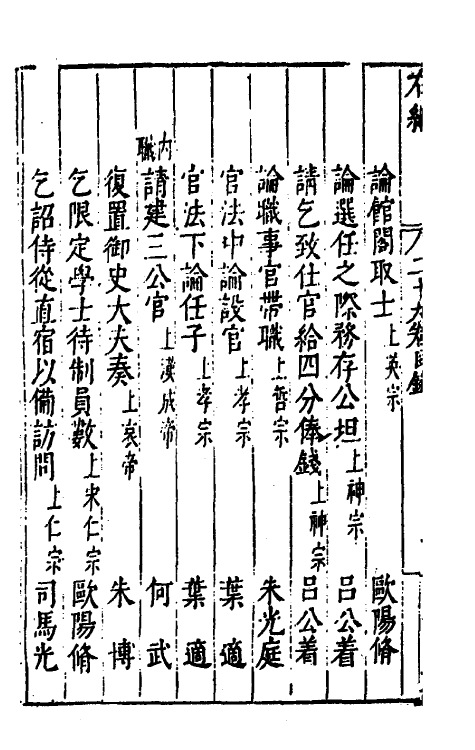 右編 二十九卷目錄
論館閣取士 上英宗 歐陽脩
論選任之際務存公坦 上神宗 吕公着
請乞致仕官給四分俸錢 上神宗 吕公着
論職事官帶職 上哲宗 朱光庭
官法中論設官 上孝宗 葉適
官法下論任子 上孝宗 葉適
内職
請建三公官 上漢成帝 何武
復置御史大夫奏 上哀帝 朱博
乞限定學士待制員數 上宋仁宗 歐陽脩
乞詔侍從直宿以備訪問 上仁宗 司馬光